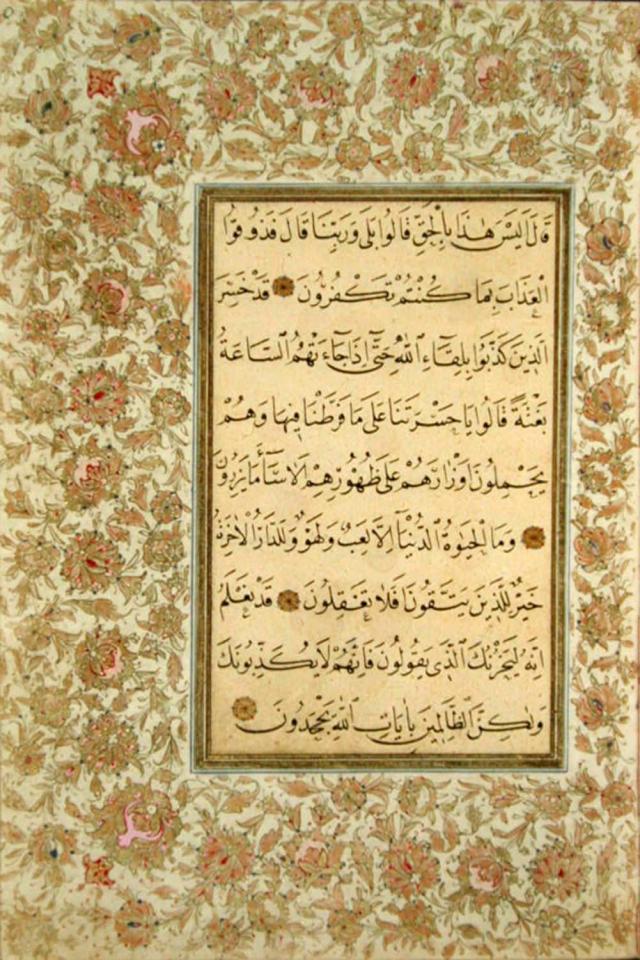 قَالَ اَلَيْسَ هٰذَا بِالْحَقِّ قَالُوا بَلٰى وَرَبِّنَا قَالَ فَذُوقُوا
الْعَذَابَ بِمَا كُنْتُمْ تَكْفُرُونَ قَدْ خَسِرَ
الَّذِينَ كَذَّبُوا بِلِقَاءِ اللّٰهِ حَتّٰى اِذَا جَاءَتْهُمُ السَّاعَةُ
بَغْتَةً قَالُوا يَا حَسْرَتَنَا عَلٰى مَا فَرَّطْنَا فِيهَا وَهُمْ
يَحْمِلُونَ اَوْزَارَهُمْ عَلٰى ظُهُورِهِمْ اَلَا سَاءَ مَا يَزِرُونَ
وَمَا الْحَيٰوةُ الدُّنْيَا اِلَّا لَعِبٌ وَلَهْوٌ وَلَلدَّارُ الْاٰخِرَةُ
خَيْرٌ لِلَّذِينَ يَتَّقُونَ اَفَلَا تَعْقِلُونَ قَدْ نَعْلَمُ
اِنَّهُ لَيَحْزُنُكَ الَّذِي يَقُولُونَ فَاِنَّهُمْ لَا يُكَذِّبُونَكَ
وَلٰكِنَّ الظَّالِمِينَ بِاٰيَاتِ اللّٰهِ يَجْحَدُونَ